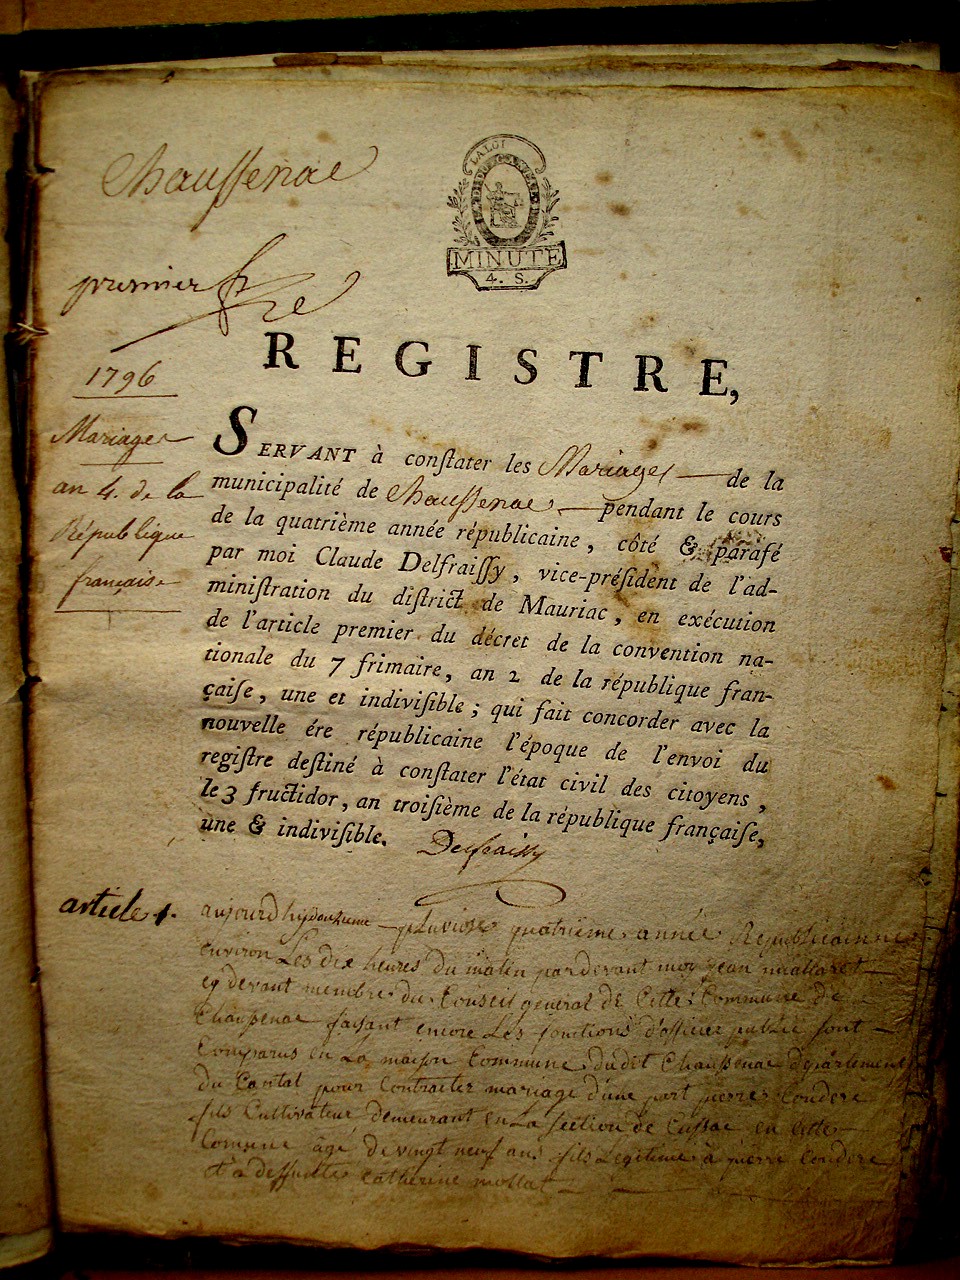 Chaussenac
LA LOI
MINUTE
4. S.
premier
1796
Mariages
an 4. de la
République
française
REGISTRE,
SERVANT à conſtater les Mariages de la
municipalité de Chaussenac pendant le cours
de la quatrième année républicaine, côté & parafé
par moi Claude Delfraiſſy, vice-préſident de l'ad-
miniſtration du diſtrict de Mauriac, en exécution
de l'article premier du décret de la convention na-
tionale du 7 frimaire, an 2 de la république fran-
çaiſe, une et indiviſible; qui fait concorder avec la
nouvelle ére républicaine l'époque de l'envoi du
regiſtre deſtiné à conſtater l'état civil des citoyens,
le 3 fructidor, an troiſième de la république françaiſe,
une & indiviſible. Delfraissy
article 1. aujourdhy douzieme pluviose quatrieme année Republicainne
environ les dix heures du matin pardevant moy jean
cy devant membre du Conseil general de Cette Commune de
Chaussenac faisant encore Les fonctions d'officier public sont
Comparus en La maison Commune dudit Chaussenac département
du Cantal pour Contracter mariage d'une part pierre Couderc
fils Cultivateur demeurant en La section de Cussac en cette
Comune âgé de vingt neuf ans fils Legitime à pierre Couderc
et a deffuitte Catherine